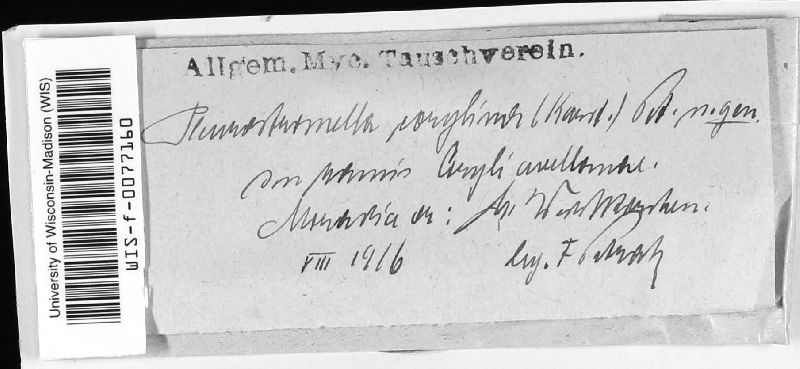 University of Wisconsin-Madison (WIS)
WIS-f-0077160
Allgem. Myc. Tauschverein.
Pleurostromella corylina (Karst.) Pet. n. gen.
ramis Coryli avellanae.
Moravia or.: M. Weisskirchen.
VIII 1916 leg. F Petrak